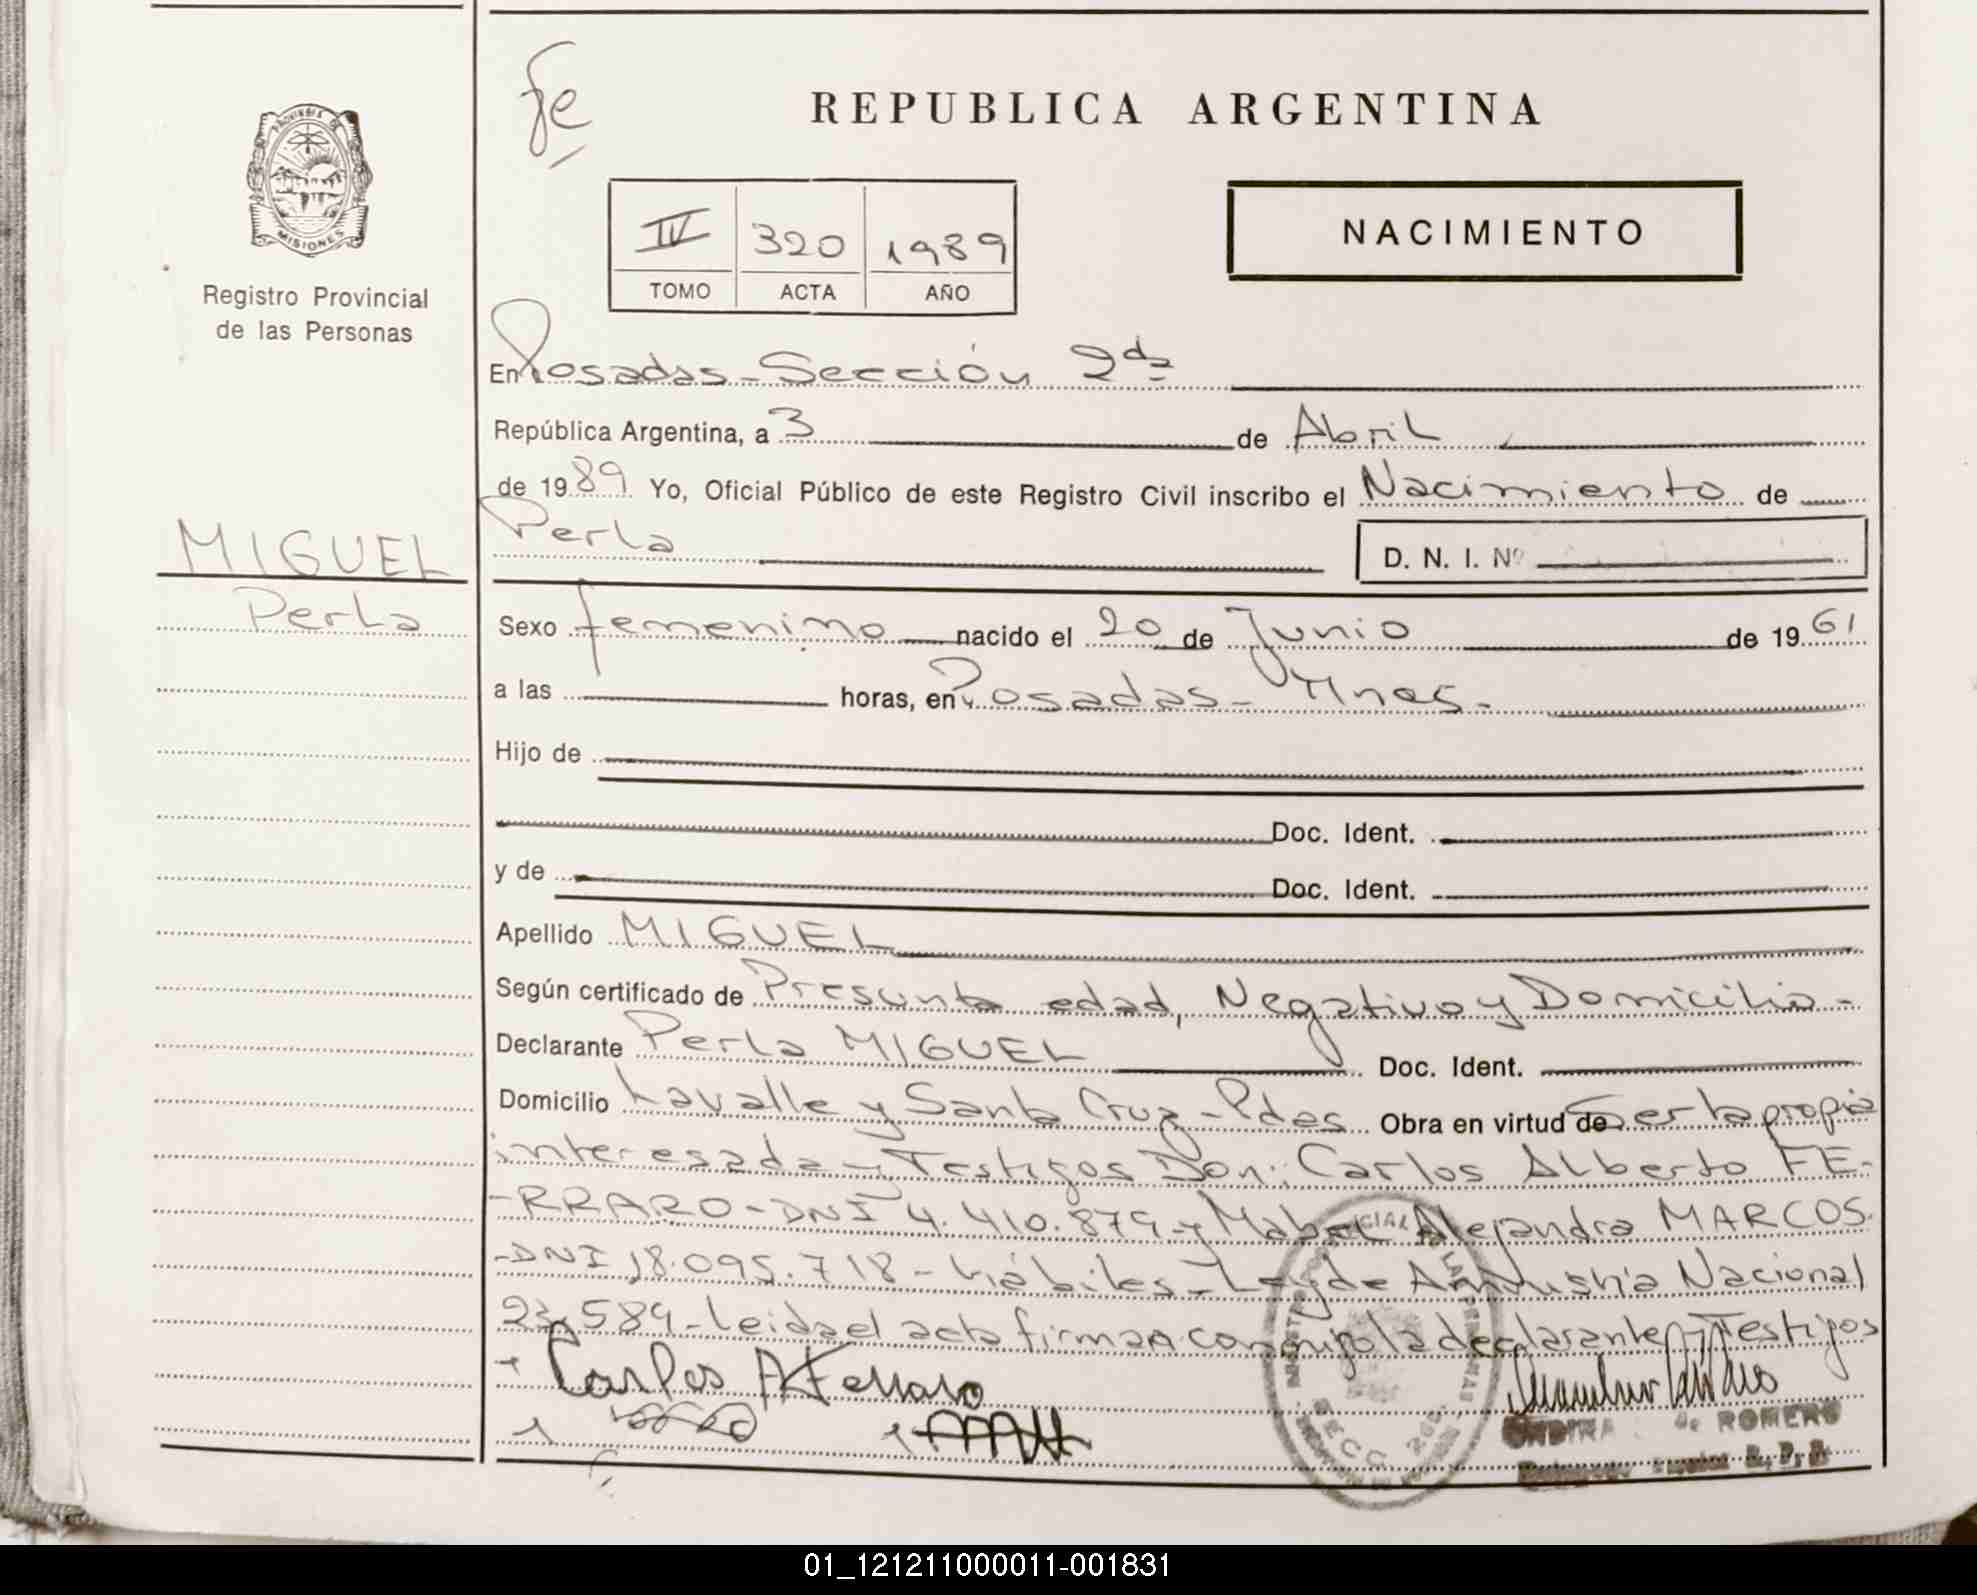 fe
REPUBLICA ARGENTINA
PROVINCIA DE
MISIONES
Registro Provincial
de las Personas
IV 320 1989
TOMO ACTA AÑO
NACIMIENTO
En Posadas - Sección 2da
República Argentina, a 3 de Abril
de 1989 Yo, Oficial Público de este Registro Civil inscribo el Nacimiento de
Perla
D. N. I. Nº
MIGUEL
Perla
Sexo femenino nacido el 20 de Junio de 1961
a las horas, en Posadas - Mnes.
Hijo de
Doc. Ident.
y de Doc. Ident.
Apellido MIGUEL
Según certificado de Presunta edad, Negativo y Domicilio -
Declarante Perla MIGUEL Doc. Ident.
Domicilio Lavalle y Santa Cruz - Pdas Obra en virtud de Ser la propia
interesada y Testigos Don: Carlos Alberto FE-
-RRARO - DNI 4.410.879 y Mabel Alejandra MARCOS
-DNI 18.095.718 - hábiles - Ley de Amnistía Nacional
23.584 - Leida el acta firman conmigo la declarante y Testigos
Carlos A Ferraro
SECC 2da.
de ROMERO
01_121211000011-001831